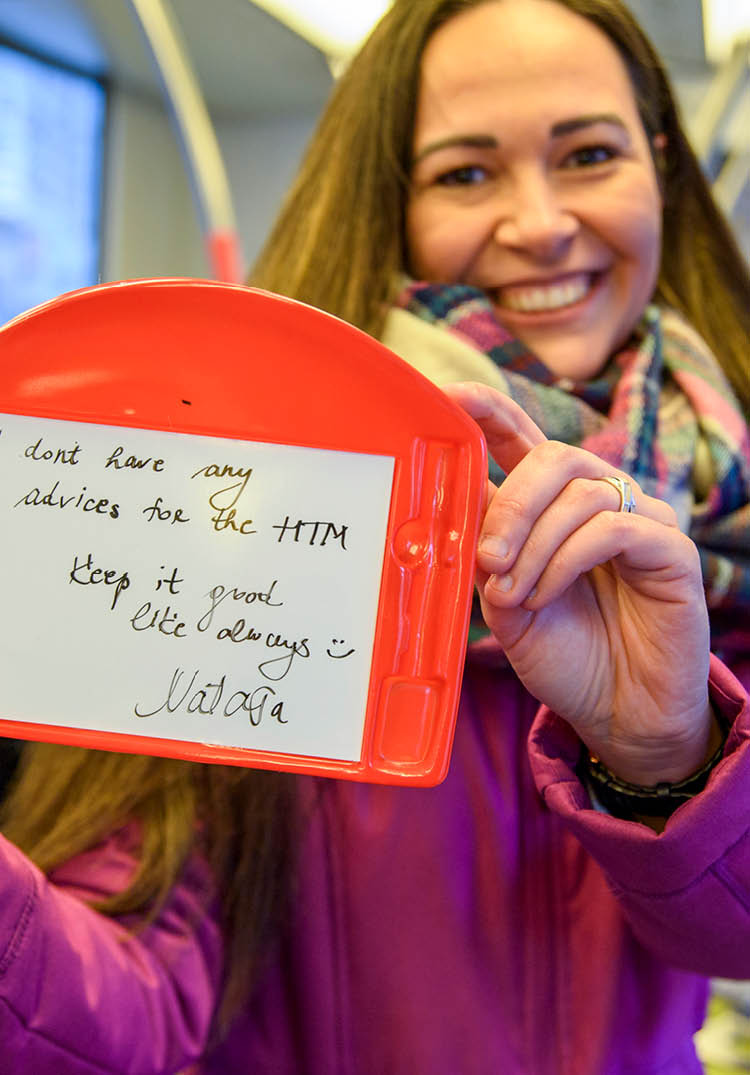 I dont have any
advices for the HTM
Keep it good
like always :)